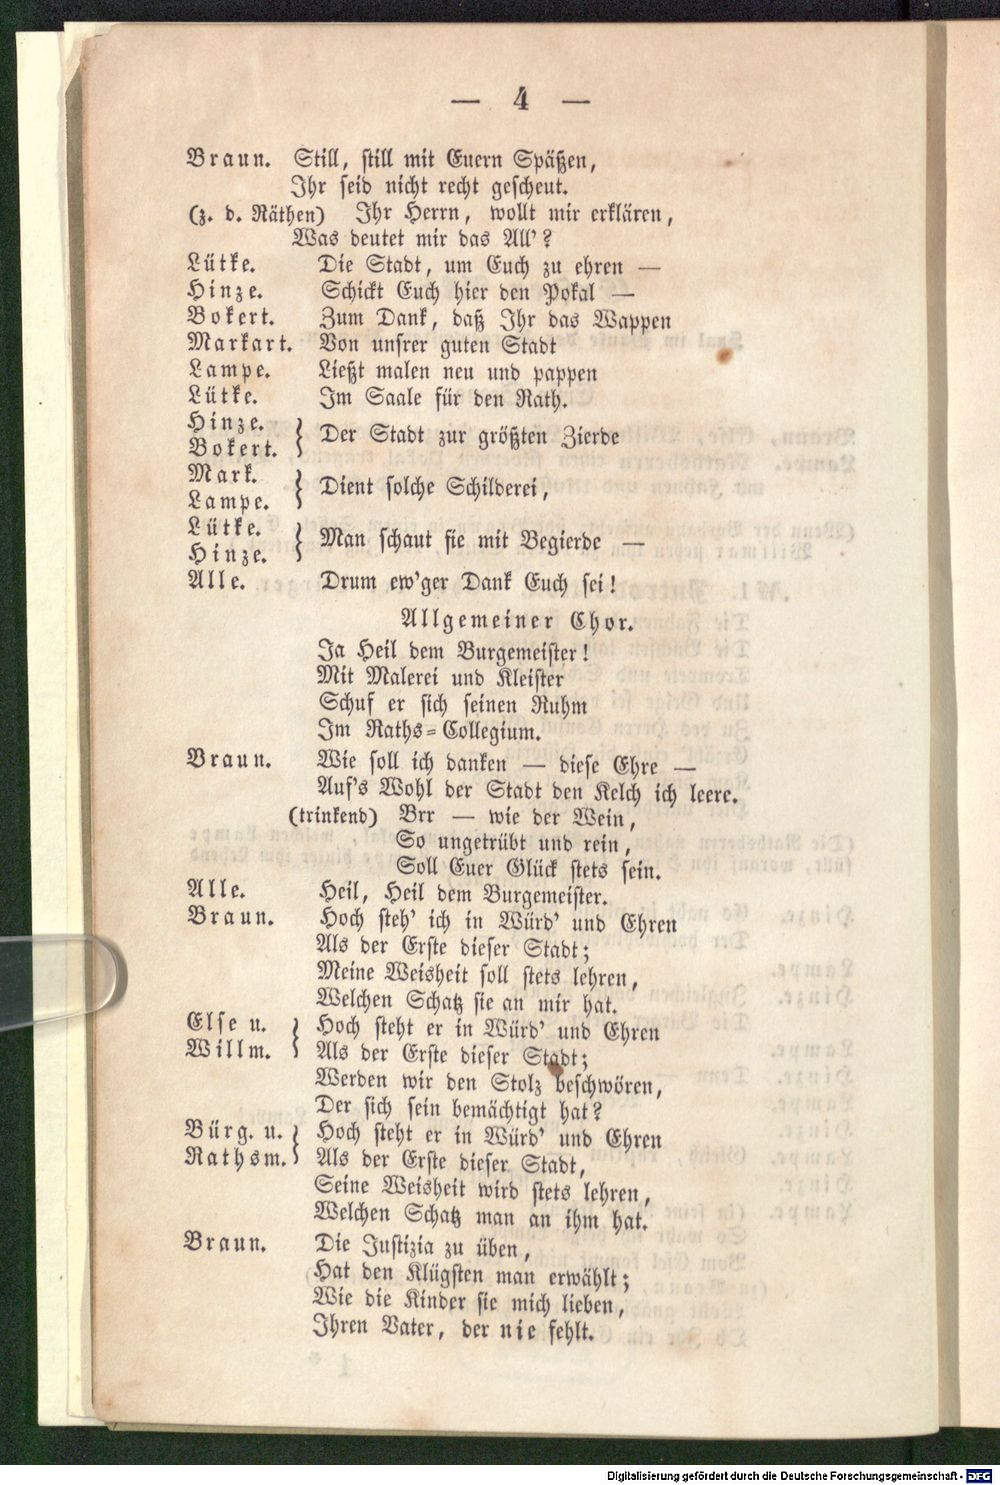 — 4 —
Braun. Still, still mit Euern Späßen,
Ihr seid nicht recht gescheut.
(z. d. Räthen) Ihr Herrn, wollt mir erklären,
Was deutet mir das All'?
Lütke. Die Stadt, um Euch zu ehren —
Hinze. Schickt Euch hier den Pokal —
Bokert. Zum Dank, daß Ihr das Wappen
Markart. Von unsrer guten Stadt
Lampe. Ließt malen neu und pappen
Lütke. Im Saale für den Rath.
Hinze.
Bokert. } Der Stadt zur größten Zierde
Mark.
Lampe. } Dient solche Schilderei,
Lütke.
Hinze. } Man schaut sie mit Begierde —
Alle. Drum ew'ger Dank Euch sei!
Allgemeiner Chor.
Ja Heil dem Burgemeister!
Mit Malerei und Kleister
Schuf er sich seinen Ruhm
Im Raths=Collegium.
Braun. Wie soll ich danken — diese Ehre —
Auf's Wohl der Stadt den Kelch ich leere.
(trinkend) Brr — wie der Wein,
So ungetrübt und rein,
Soll Euer Glück stets sein.
Alle. Heil, Heil dem Burgemeister.
Braun. Hoch steh' ich in Würd' und Ehren
Als der Erste dieser Stadt;
Meine Weisheit soll stets lehren,
Welchen Schatz sie an mir hat.
Else u. } Hoch steht er in Würd' und Ehren
Willm. Als der Erste dieser Stadt;
Werden wir den Stolz beschwören,
Der sich sein bemächtigt hat?
Bürg. u. } Hoch steht er in Würd' und Ehren
Rathsm. Als der Erste dieser Stadt,
Seine Weisheit wird stets lehren,
Welchen Schatz man an ihm hat.
Braun. Die Justizia zu üben,
Hat den Klügsten man erwählt;
Wie die Kinder sie mich lieben,
Ihren Vater, der nie fehlt.
Digitalisierung gefördert durch die Deutsche Forschungsgemeinschaft - DFG